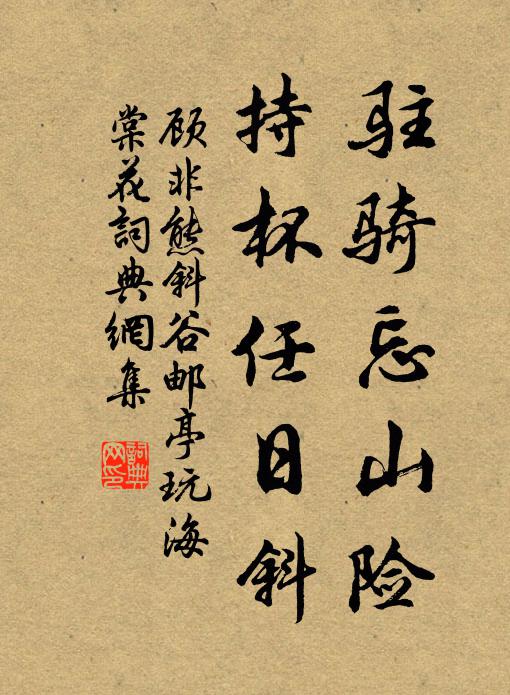 驻骑忘山险
持杯任日斜
顾非熊斜谷邮亭玩海
棠花詞典網集
詞典网印